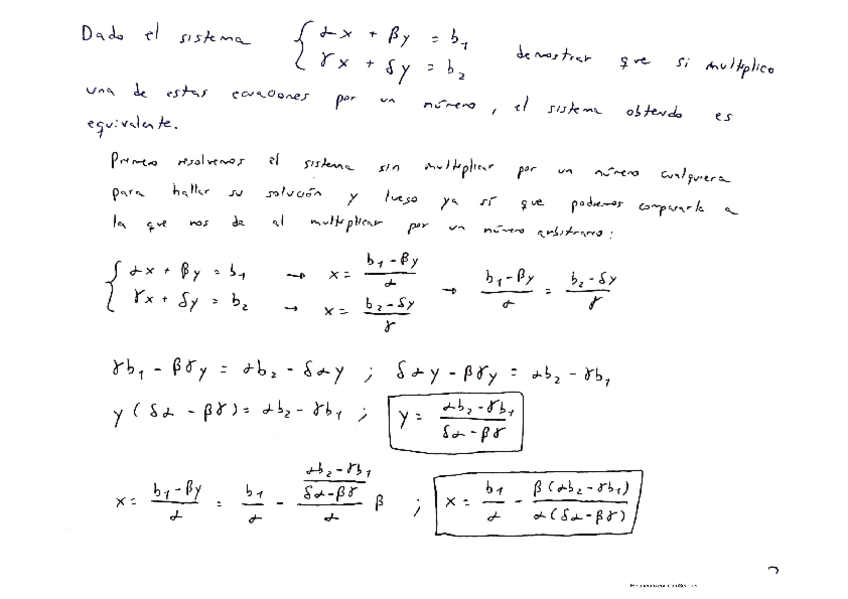 Dado el sistema { αx + βy = b₁ demostrar que si multiplico
γx + δy = b₂
una de estas ecuaciones por un número, el sistema obtendo es
equivalente.
Primero resolvemos el sistema sin multiplicar por un número cualquiera
para hallar su solución y luego ya sí que podremos compararla a
la que nos de al multiplicar por un número arbitrario:
{ αx + βy = b₁ → x = (b₁-βy)/α → (b₁-βy)/α = (b₂-δy)/γ
γx + δy = b₂ → x = (b₂-δy)/γ
γb₁ - βγy = αb₂ - δαy ; δαy - βγy = αb₂ - γb₁
y(δα - βγ) = αb₂ - γb₁ ; y = (αb₂-γb₁)/(δα-βγ)
x = (b₁-βy)/α = b₁/α - ((αb₂-γb₁)/(δα-βγ))/α β ; x = b₁/α - β(αb₂-γb₁)/(α(δα-βγ))